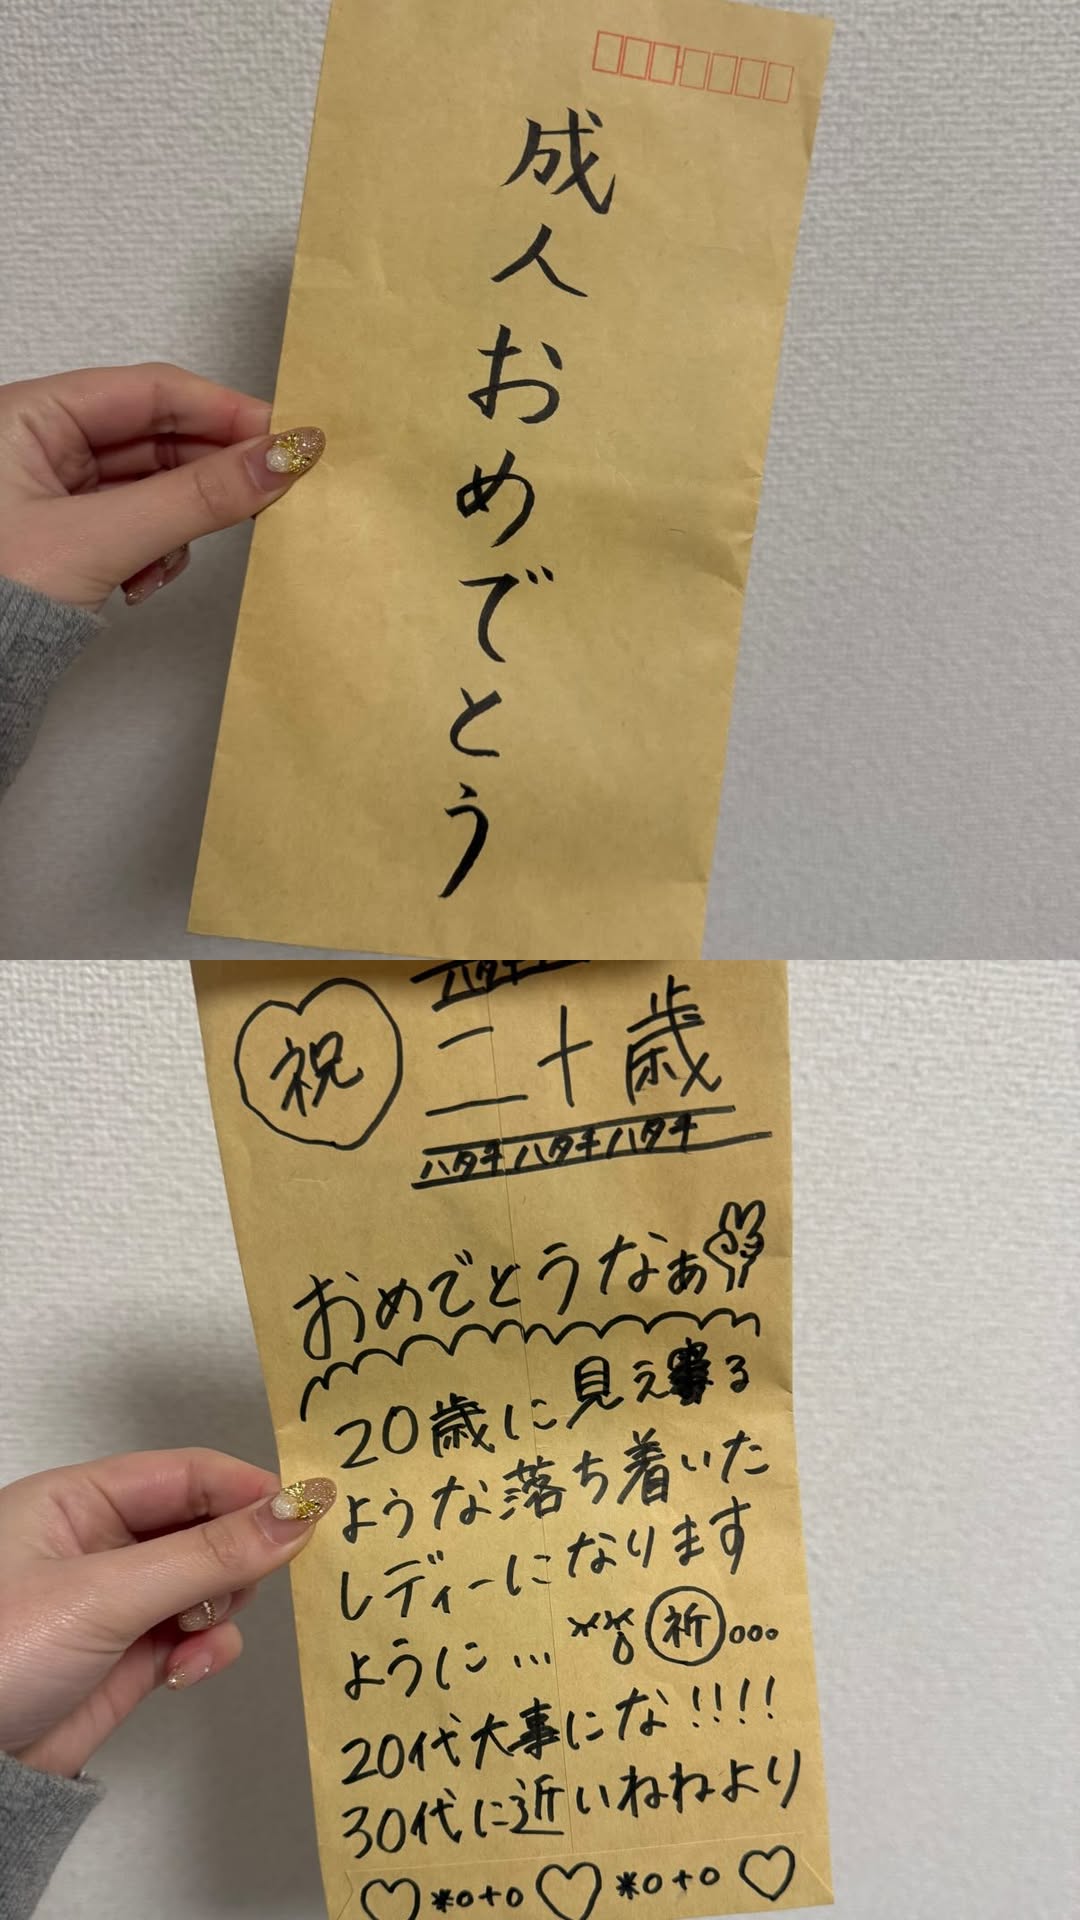 成人おめでとう
祝
ハタチ
二十歳
ハタチハタチハタチ
おめでとうなぁ
20歳に見える
ような落ち着いた
レディーになります
ように… 祈...
20代大事にな!!!!
30代に近いねねより
♡*o+o♡*o+o♡